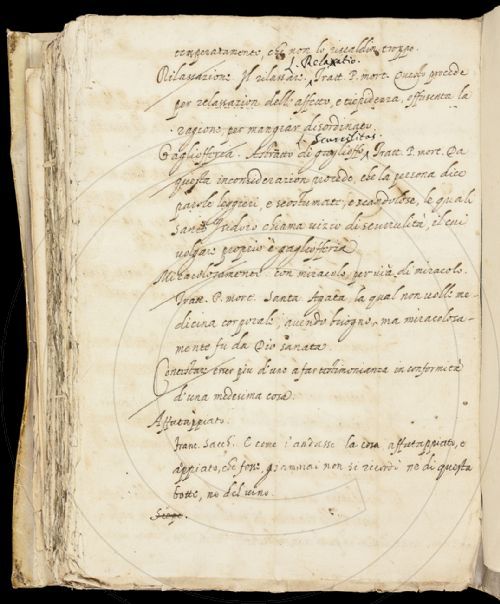 temperatamente, che non lo riscaldin troppo.
l. Relaxatio.
Rilassazione. Il rilassar. Tratt. P. mort. Questo procede
per relassazion dell'affetto, e tiepidezza, offusca la
ragione, per mangiar disordinato.
l. Scurrilitas.
Gaglioffería. Astratto di gaglioffo, Tratt. P. mort. Da
questa inconsiderazion procede, che la persona dice
parole leggieri, e scostumate, e scandolose, le quali
santo Isidoro chiama vizio di scurrilità, il cui
volgar proprio è gaglioffería
Miracolosamente. con miracolo, per via di miracolo.
Tratt. P. mort. Santa Agata, la qual non volle me-
dicina corporale, avendo bisogno, ma miracolosa-
mente fu da Dio sanata.
Contestar. esser piu d'uno a far testimonianza in conformità
d'una medesima cosa
Affatappiato.
Franc. Sacch. E come i' andasse la cosa affatappiato, e
appiato, che fosse, giammai non si ricordò ne di questa
botte, ne del vino.